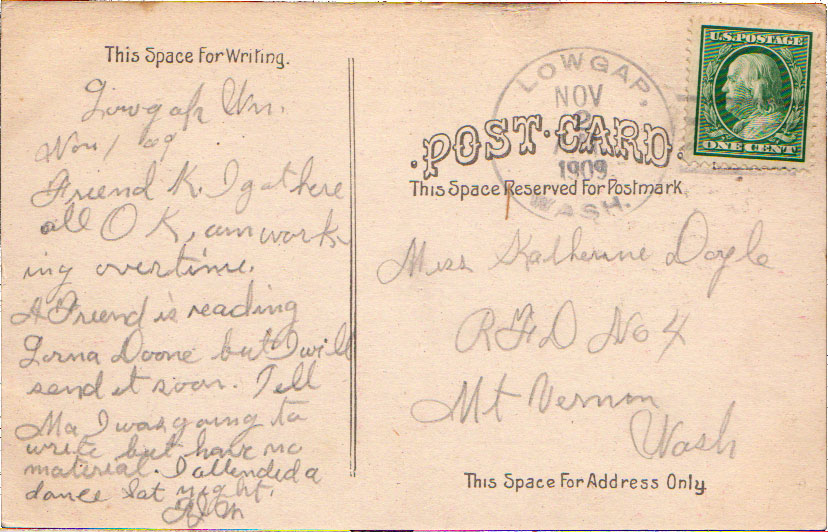 This Space For Writing.
Lowgap Wn.
Nov 1 09
Friend K. I got here
all O K, am work-
ing overtime.
A Friend is reading
Lorna Doone but I will
send it soon. Tell
Ma I was going to
write but have no
material. I attended a
dance Sat night.
LOWGAP,
NOV
2
1909
WASH.
U.S. POSTAGE
ONE CENT
POST CARD.
This Space Reserved For Postmark
Miss Katherine Doyle
R F D No 4
Mt Vernon
Wash
This Space For Address Only.